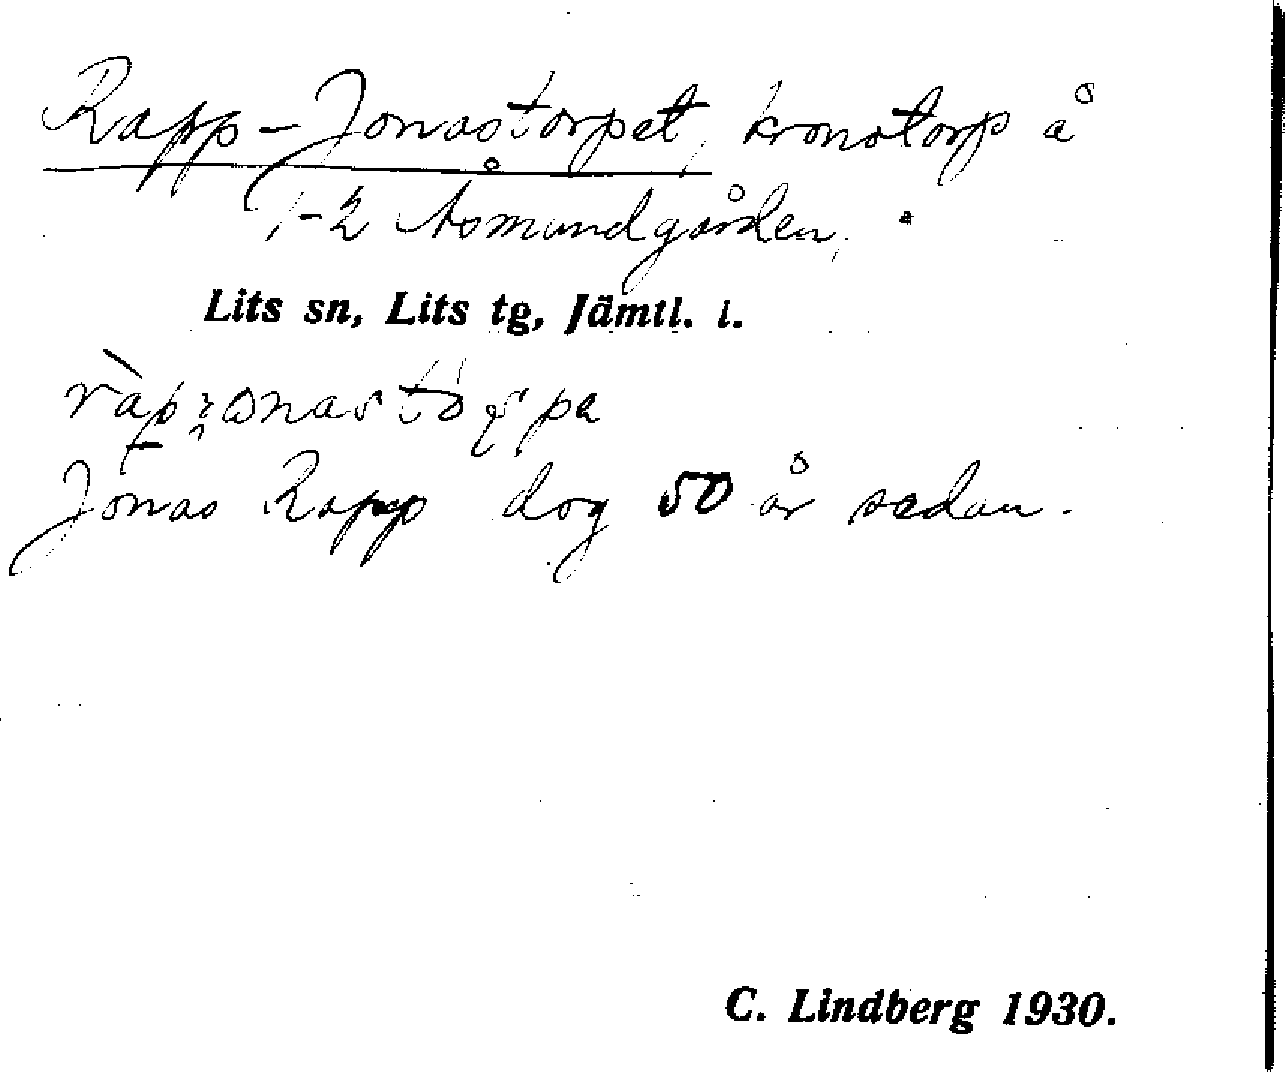 Rapp-Jonastorpet, kronotorp å
1-2 Åsmundgården,
Lits sn, Lits tg, Jämtl. l.
Jonas Rapp dog 50 år sedan.
C. Lindberg 1930.